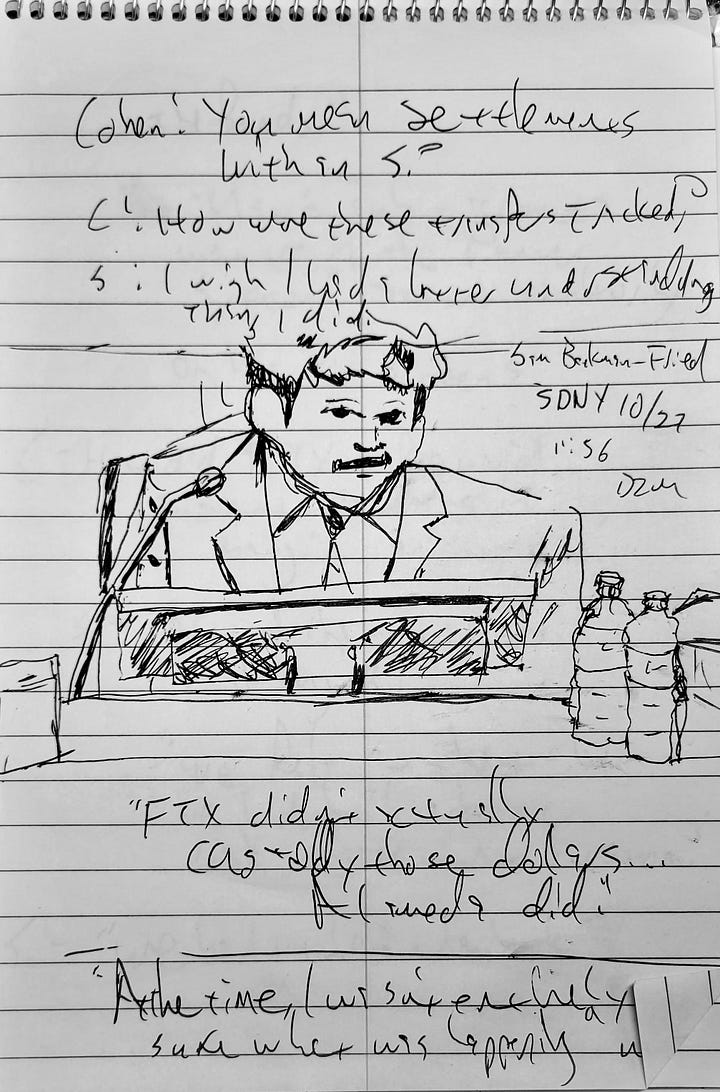 Cohen: You mean settlements
within S.?
C: How were these transfers tracked?
S: I wish I had a better understanding
than I did.
Sam Bankman-Fried
SDNY 10/27
1:56
"FTX didn't actually
custody those dollars...
Alameda did."
"At the time, I wasn't entirely
sure what was happening